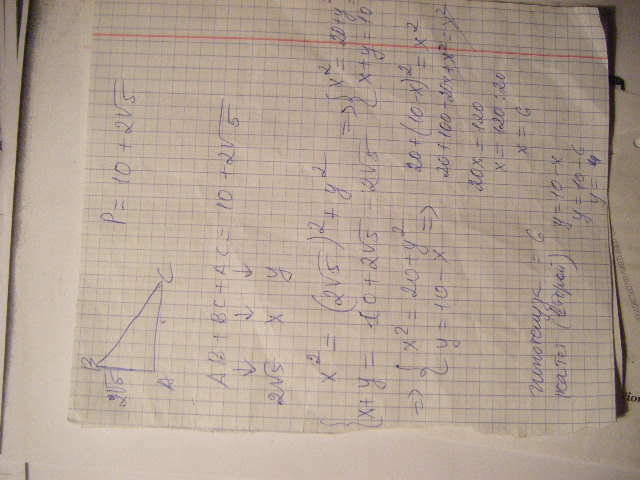 P = 10 + 2√5
B
2√5
A
C
AB + BC + AC = 10 + 2√5
↓ ↓ ↓
2√5 x y
{ x² = (2√5)² + y²
{ x + y = 10 + 2√5 - 2√5
=> { x² = 20 + y²
{ x + y = 10
=> { x² = 20 + y²
{ y = 10 - x
=>
20 + (10 - x)² = x²
20 + 100 - 20x + x² = x²
20x = 120
x = 120 : 20
x = 6
y = 10 - x
y = 10 - 6
y = 4
гипотенуза = 6
катет (второй)